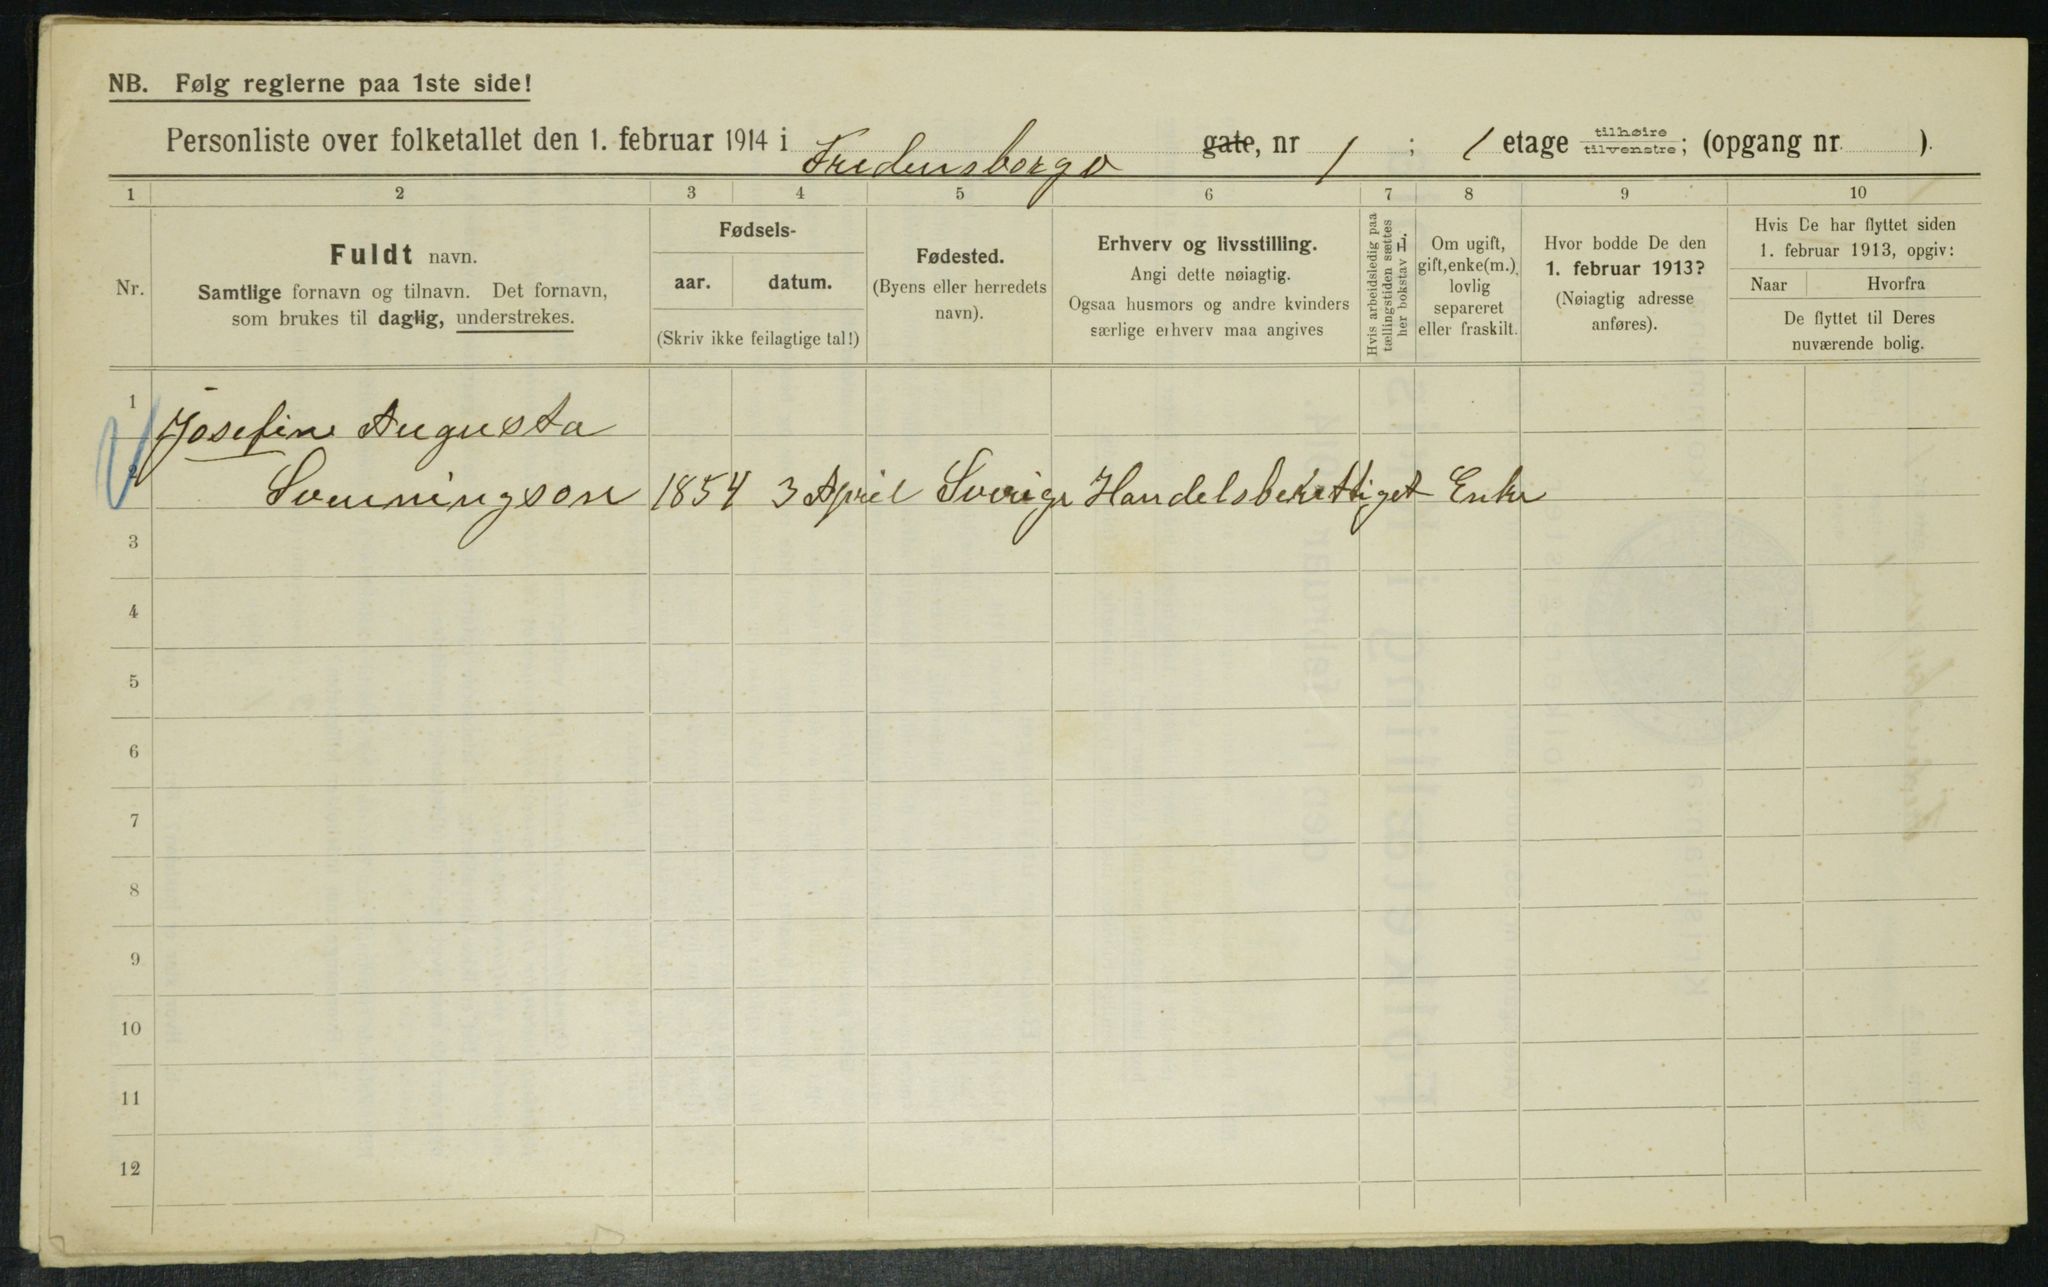 NB. Følg reglerne paa 1ste side!
Personliste over folketallet den 1. februar 1914 i Fredensborgv gate, nr 1 ; 1 etage tilhøire tilvenstre; (opgang nr. ).
1 2 3 4 5 6 7 8 9 10
Nr.
Fuldt navn.
Samtlige fornavn og tilnavn. Det fornavn,
som brukes til daglig, understrekes.
Fødsels-
aar. datum.
(Skriv ikke feilagtige tal!)
Fødested.
(Byens eller herredets
navn).
Erhverv og livsstilling.
Angi dette nøiagtig.
Ogsaa husmors og andre kvinders
særlige erhverv maa angives
Hvis arbeidsledig paa
tællingstiden sættes
her bokstav L.
Om ugift,
gift, enke(m.),
lovlig
separeret
eller fraskilt.
Hvor bodde De den
1. februar 1913?
(Nøiagtig adresse
anføres).
Hvis De har flyttet siden
1. februar 1913, opgiv:
Naar Hvorfra
De flyttet til Deres
nuværende bolig.
1 Josefine Augusta
2 Svenningson 1854 3 April Sverige Handelsberettiget Enke
3
4
5
6
7
8
9
10
11
12